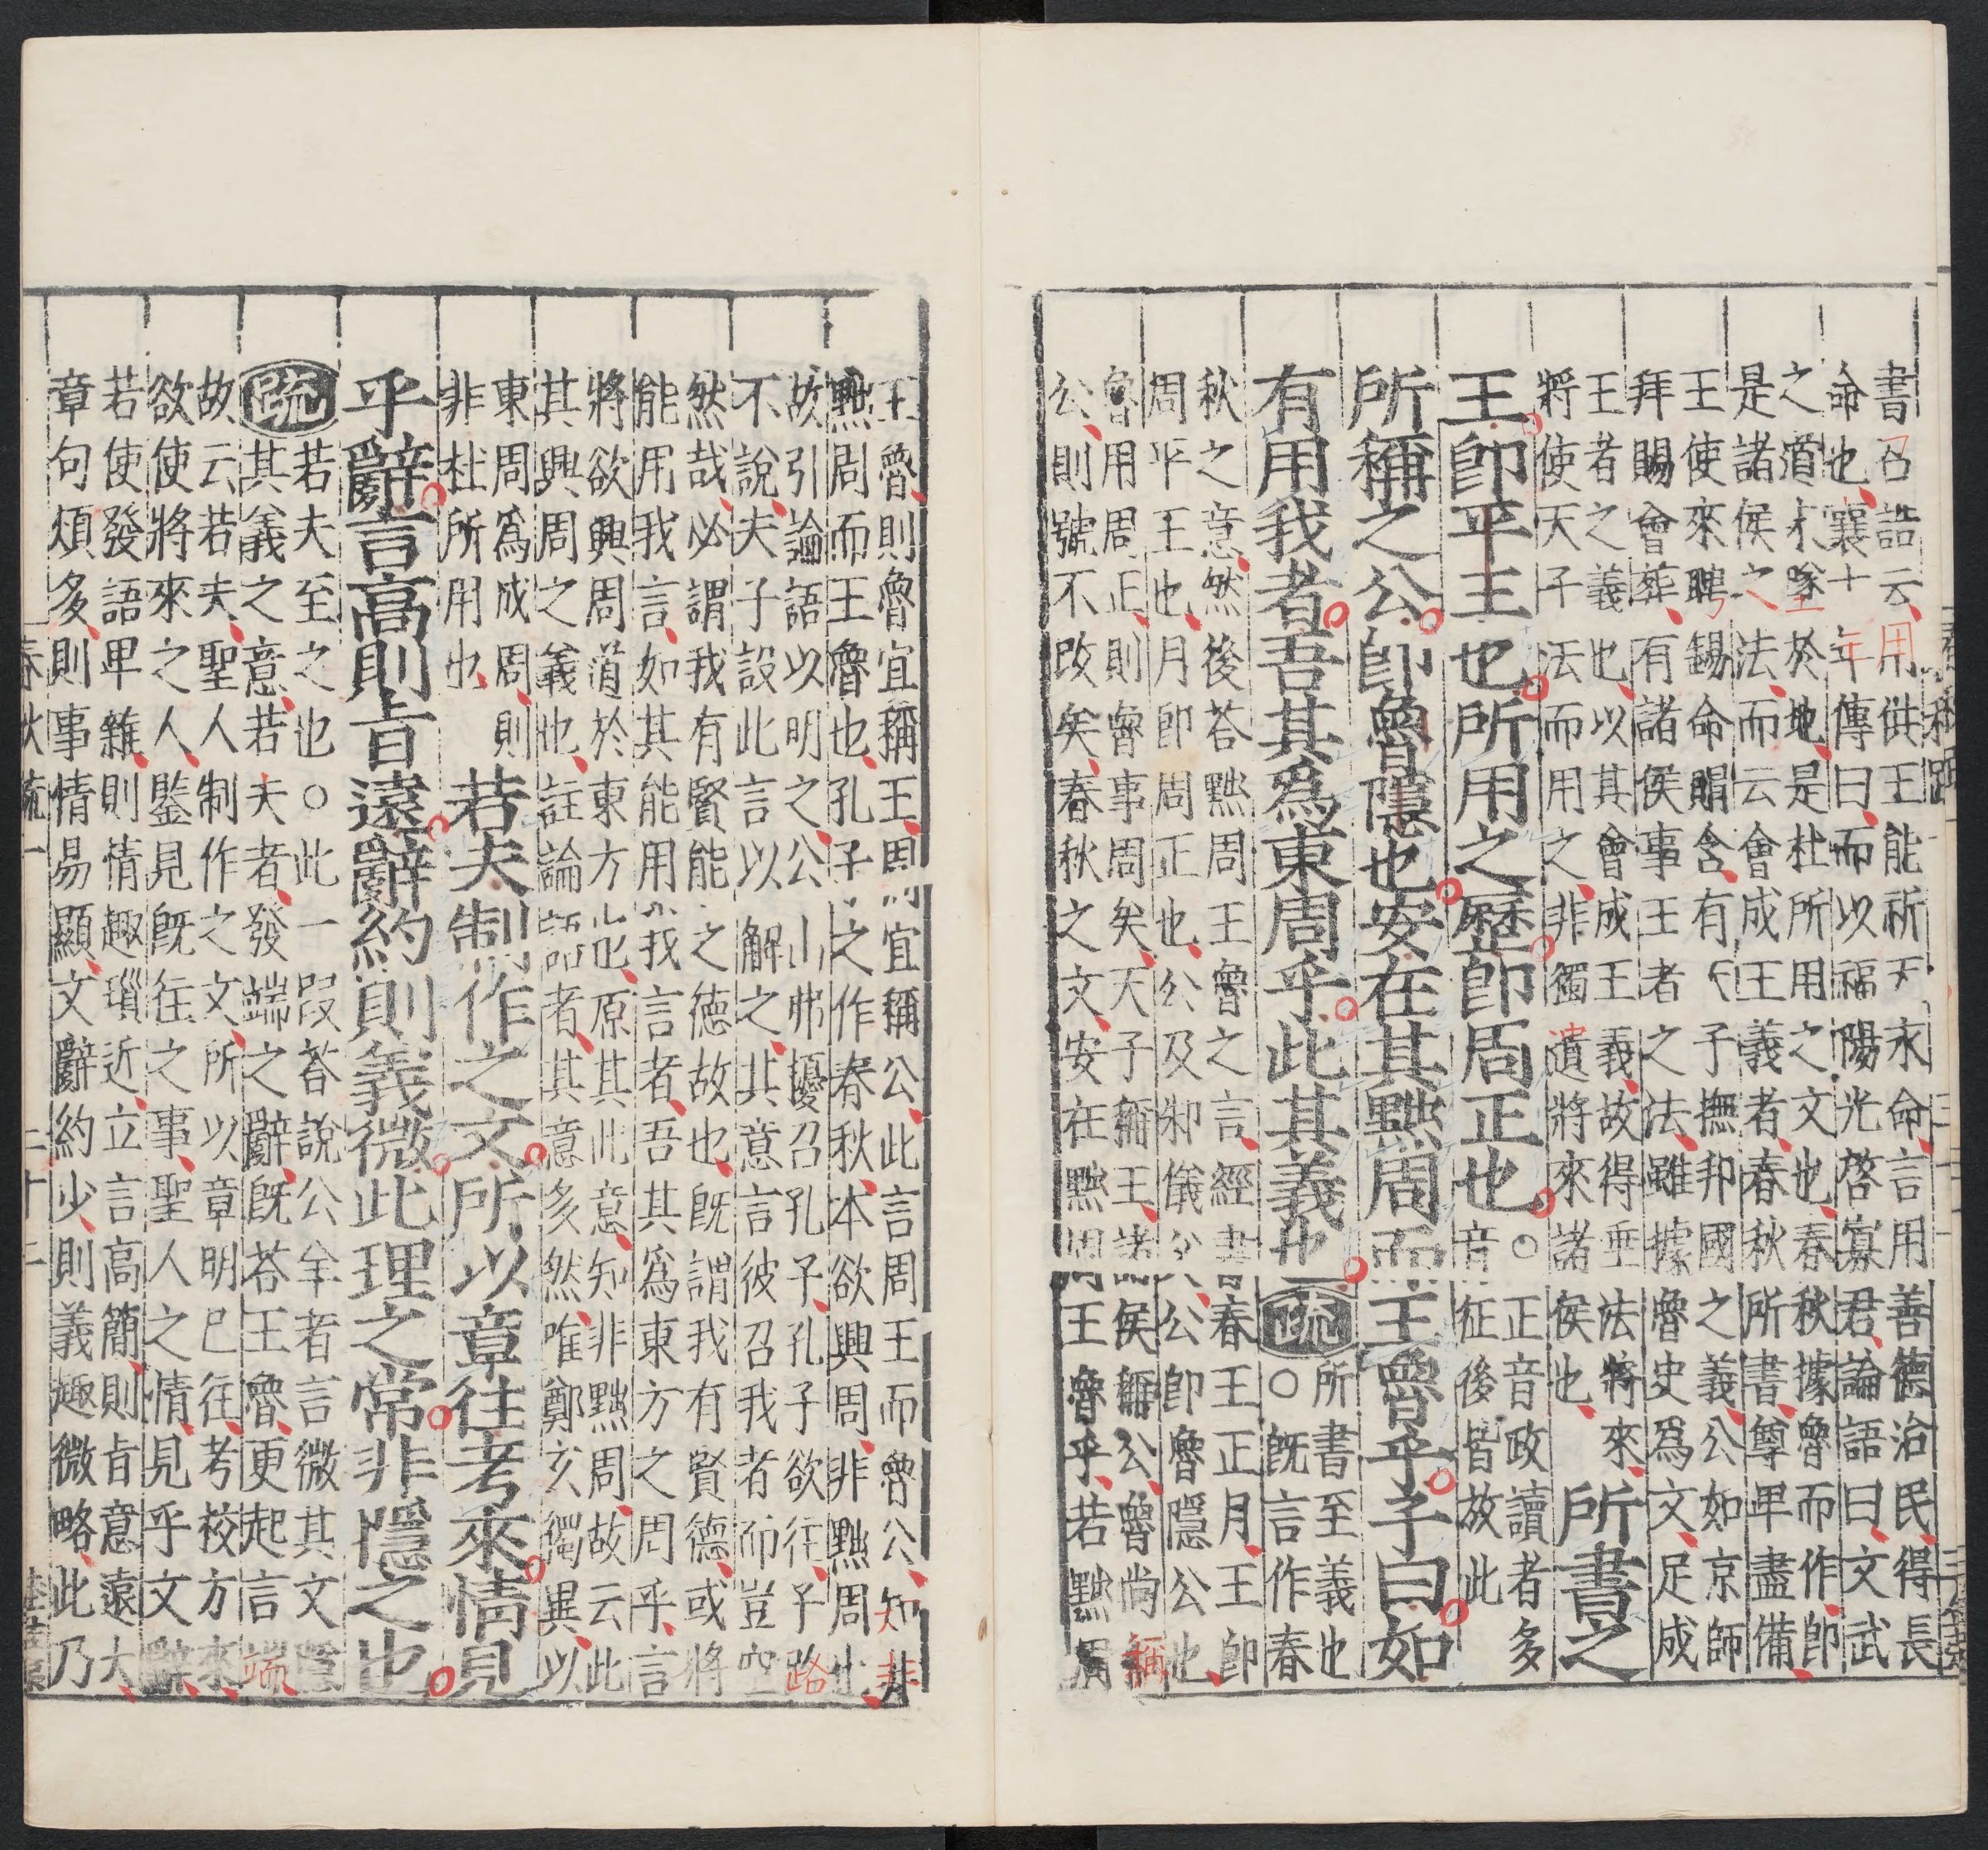 書召誥云用供王能祈天永命言用善德治民得長
命也襄十年傳曰而以福陽光啓寡君論語曰文武
之道未墜於地是杜所用之文也春秋據魯而作即
是諸侯之法而云會成王義者春秋所書尊卑盡備
王使來聘錫命賵含有天子撫邦國之義公如京師
拜賜會葬有諸侯事王者之法雖據魯史爲文足成
王者之義也以其會成王義故得垂法將來
將使天子法而用之非獨遺將來諸侯也
所書之
王即平王也所用之歷即周正也
○正音政讀者多
音征後皆放此
所稱之公即魯隱也安在其黜周而王魯乎子曰如
有用我者吾其爲東周乎此其義也
疏
所書至義也
○既言作春
秋之意然後荅黜周王魯之言經書春王正月王即
周平王也月即周正也公及邾儀父公即魯隱公也
魯用周正則魯事周矣天子稱王諸侯稱公魯尚稱
公則號不改矣春秋之文安在黜周王魯乎若黜周
王魯則魯宜稱王周宜稱公此言周王而魯公知非
黜周而王魯也孔子之作春秋本欲興周非黜周也
故引論語以明之公山弗擾召孔子孔子欲往子路
不說夫子設此言以解之其意言彼召我者而豈空
然哉必謂我有賢能之德故也既謂我有賢德或將
能用我言如其能用我言者吾其爲東方之周乎言
將欲興周道於東方也原其此意知非黜周故云此
其興周之義也註論語者其意多然唯鄭玄獨異以
東周爲成周則
非杜所用也
若夫制作之文所以章往考來情見
乎辭言高則旨遠辭約則義微此理之常非隱之也
疏
若夫至之也○此一段荅說公羊者言微其文隱
其義之意若夫者發端之辭既荅王魯更起言端
故云若夫聖人制作之文所以章明已往考校方來
欲使將來之人鑒見既往之事聖人之情見乎文辭
若使發語卑雜則情趣瑣近立言高簡則旨意遠大
章句煩多則事情易顯文辭約少則義趣微略此乃
春秋疏一 二十二